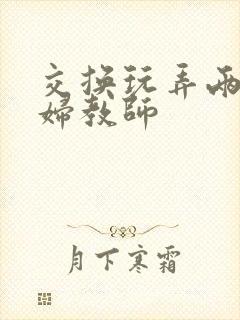 交换玩弄两
婦教師
月下寒霜